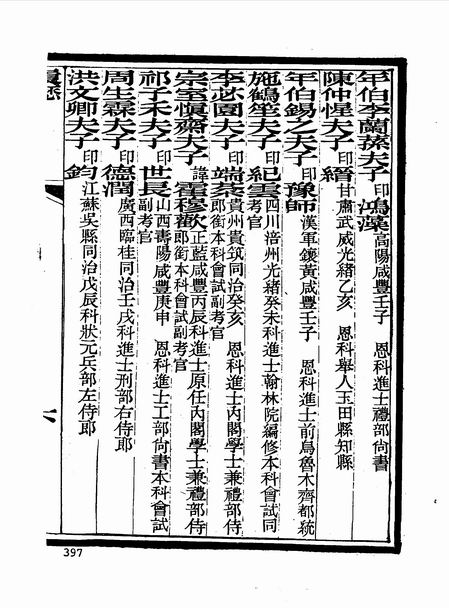 年伯李蘭蓀夫子印鴻藻高陽咸豐壬子 恩科進士禮部尚書
陳仲惺夫子印縉甘肅武威光緒乙亥 恩科舉人玉田縣知縣
年伯錫之夫子印豫師漢軍鑲黃咸豐壬子 恩科進士前烏魯木齊都統
施鶴笙夫子印紀雲四川涪州光緒癸未科進士翰林院編修本科會試同考官
李苾園夫子印端棻貴州貴筑同治癸亥 恩科進士內閣學士兼禮部侍郎銜本科會試副考官
宗室愼齋夫子諱霍穆歡正藍咸豐丙辰科進士原任內閣學士兼禮部侍郎銜本科會試副考官
祁子禾夫子印世長山西壽陽咸豐庚申 恩科進士工部尚書本科會試副考官
周生霖夫子印德潤廣西臨桂同治壬戌科進士刑部右侍郎
洪文卿夫子印鈞江蘇吳縣同治戊辰科狀元兵部左侍郎
六
397